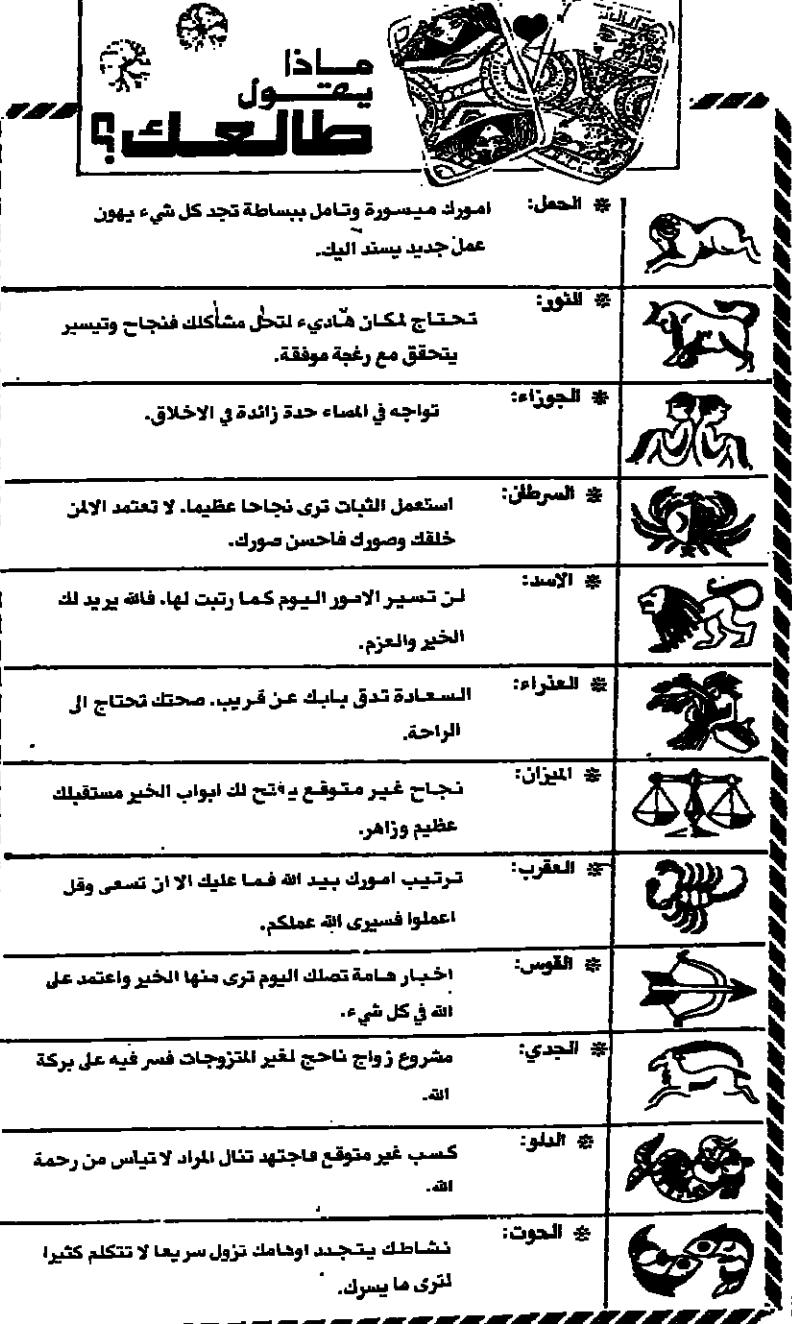 ماذا
يقول
طالعك؟
* الحمل: امورك ميسورة وتامل ببساطة تجد كل شيء يهون
عمل جديد يسند اليك.
* الثور: تحتاج لمكان هاديء لتحل مشاكلك فنجاح وتيسير
يتحقق مع رغجة موفقة.
* الجوزاء: تواجه في المساء حدة زائدة في الاخلاق.
* السرطان: استعمل الثبات ترى نجاحا عظيما. لا تعتمد الالمن
خلقك وصورك فاحسن صورك.
* الاسد: لن تسير الامور اليوم كما رتبت لها. فالله يريد لك
الخير والعزم.
* العذراء: السعادة تدق بابك عن قريب. صحتك تحتاج الى
الراحة.
* الميزان: نجاح غير متوقع يفتح لك ابواب الخير مستقبلك
عظيم وزاهر.
* العقرب: ترتيب امورك بيد الله فما عليك الا ان تسعى وقل
اعملوا فسيرى الله عملكم.
* القوس: اخبار هامة تصلك اليوم ترى منها الخير واعتمد على
الله في كل شيء.
* الجدي: مشروع زواج ناحج لغير المتزوجات فسر فيه على بركة
الله.
* الدلو: كسب غير متوقع فاجتهد تنال المراد لا تياس من رحمة
الله.
* الحوت: نشاطك يتجدد اوهامك تزول سريعا لا تتكلم كثيرا
لترى ما يسرك.